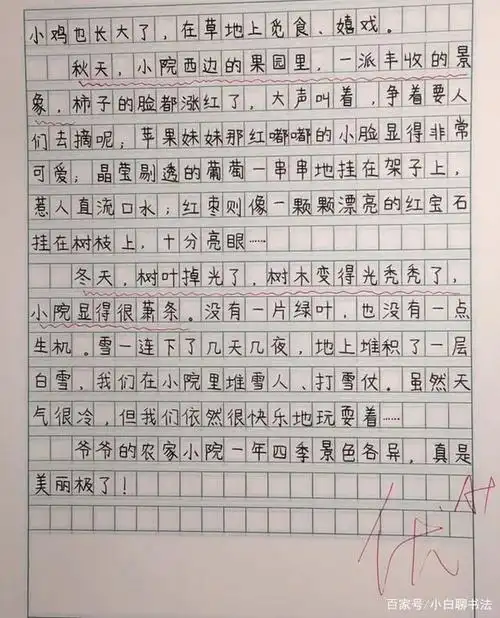 小鸡也长大了，在草地上觅食、嬉戏。
秋天，小院西边的果园里，一派丰收的景
象，柿子的脸都涨红了，大声叫着，争着要人
们去摘呢；苹果妹妹那红嘟嘟的小脸显得非常
可爱；晶莹剔透的葡萄一串串地挂在架子上，
惹人直流口水；红枣则像一颗颗漂亮的红宝石
挂在树枝上，十分亮眼……
冬天，树叶掉光了，树木变得光秃秃了，
小院显得很萧条。没有一片绿叶，也没有一点
生机。雪一连下了几天几夜，地上堆积了一层
白雪，我们在小院里堆雪人、打雪仗。虽然天
气很冷，但我们依然很快乐地玩耍着……
爷爷的农家小院一年四季景色各异，真是
美丽极了！
优 A+
百家号/小白聊书法